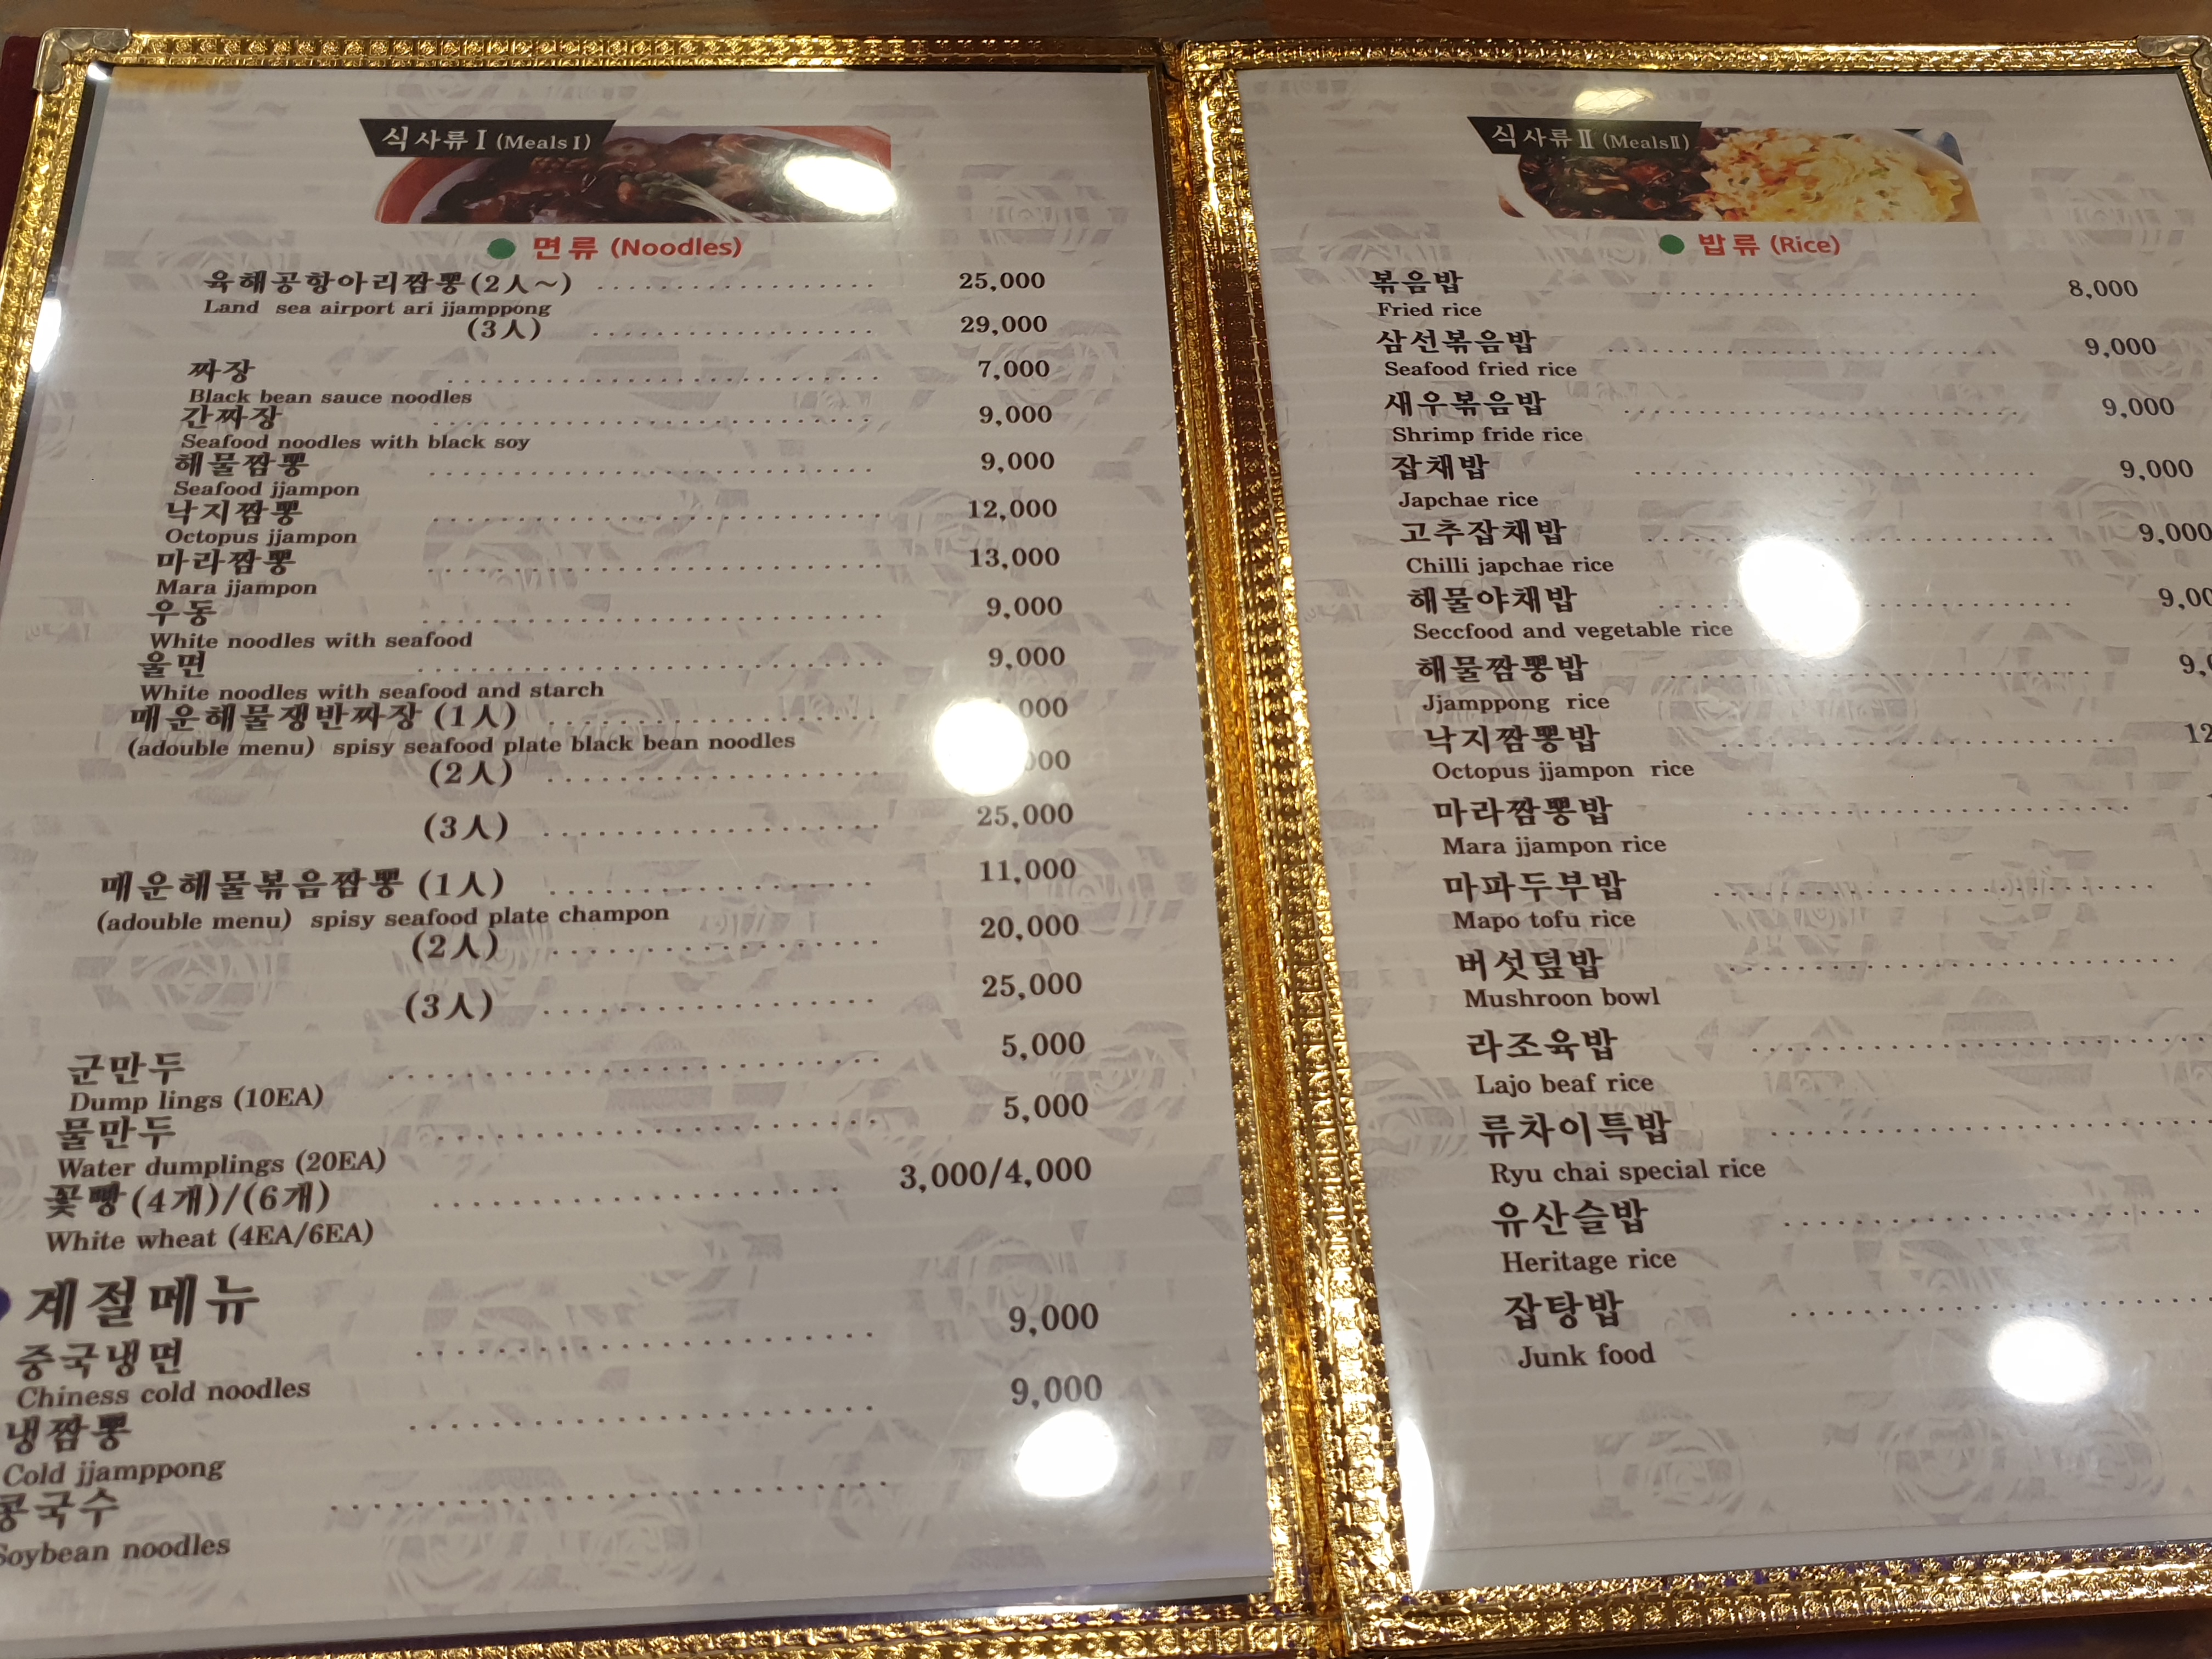 식사류 Ⅰ (Meals Ⅰ)
면류 (Noodles)
육해공항아리짬뽕(2人~) 25,000
Land sea airport ari jjamppong
(3人) 29,000
짜장 7,000
Black bean sauce noodles
간짜장 9,000
Seafood noodles with black soy
해물짬뽕 9,000
Seafood jjampon
낙지짬뽕 12,000
Octopus jjampon
마라짬뽕 13,000
Mara jjampon
우동 9,000
White noodles with seafood
울면 9,000
White noodles with seafood and starch
매운해물쟁반짜장 (1人)
(adouble menu) spisy seafood plate black bean noodles
(2人)
(3人) 25,000
매운해물볶음짬뽕 (1人) 11,000
(adouble menu) spisy seafood plate champon
(2人) 20,000
(3人) 25,000
군만두 5,000
Dump lings (10EA)
물만두 5,000
Water dumplings (20EA)
꽃빵(4개)/(6개) 3,000/4,000
White wheat (4EA/6EA)
계절메뉴
중국냉면 9,000
Chiness cold noodles
냉짬뽕 9,000
Cold jjamppong
콩국수
Soybean noodles
식사류 Ⅱ (Meals Ⅱ)
밥류 (Rice)
볶음밥 8,000
Fried rice
삼선볶음밥 9,000
Seafood fried rice
새우볶음밥 9,000
Shrimp fride rice
잡채밥 9,000
Japchae rice
고추잡채밥 9,000
Chilli japchae rice
해물야채밥
Seccfood and vegetable rice
해물짬뽕밥
Jjamppong rice
낙지짬뽕밥
Octopus jjampon rice
마라짬뽕밥
Mara jjampon rice
마파두부밥
Mapo tofu rice
버섯덮밥
Mushroon bowl
라조육밥
Lajo beaf rice
류차이특밥
Ryu chai special rice
유산슬밥
Heritage rice
잡탕밥
Junk food